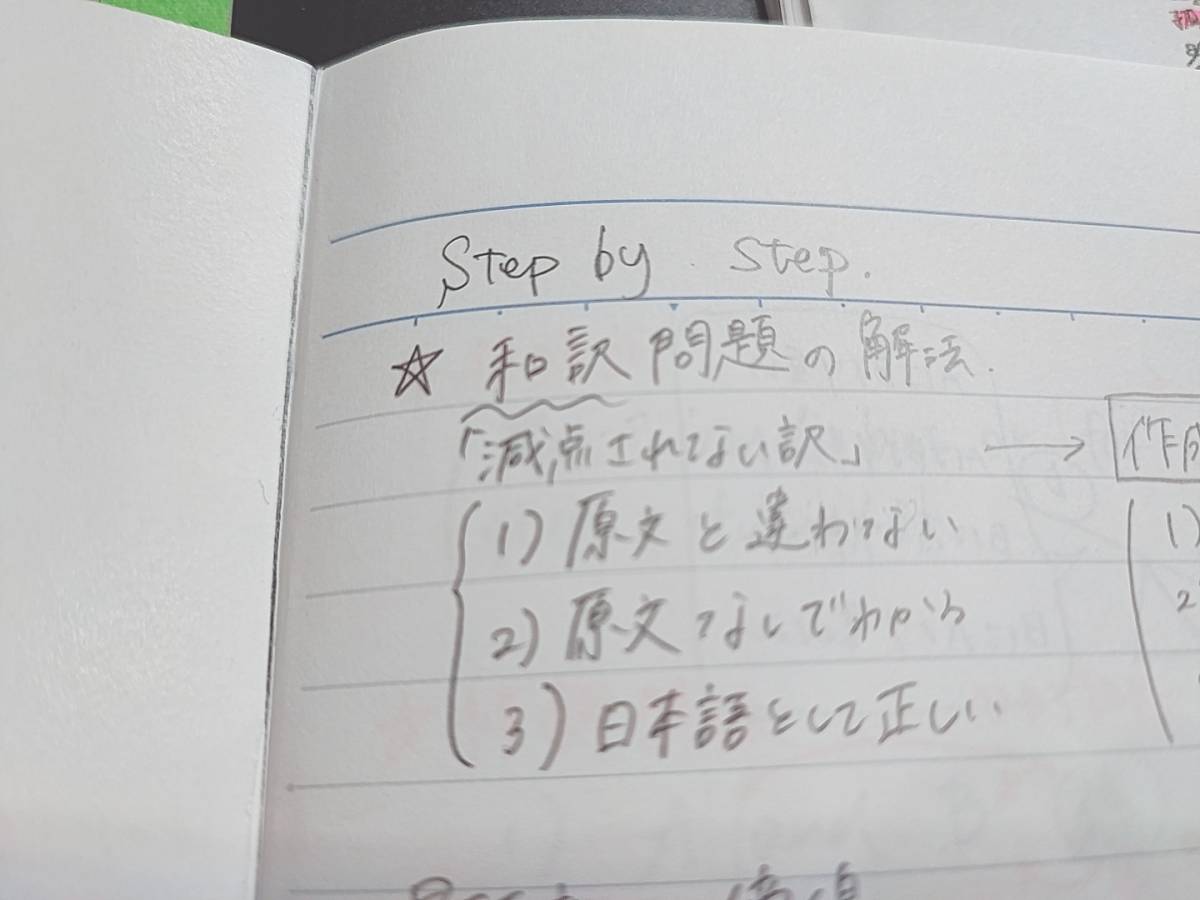 Step by step.
☆ 和訳問題の解法.
「減点されない訳」 → 作成
1) 原文と違わない
2) 原文なしでわかる
3) 日本語として正しい
1)
2